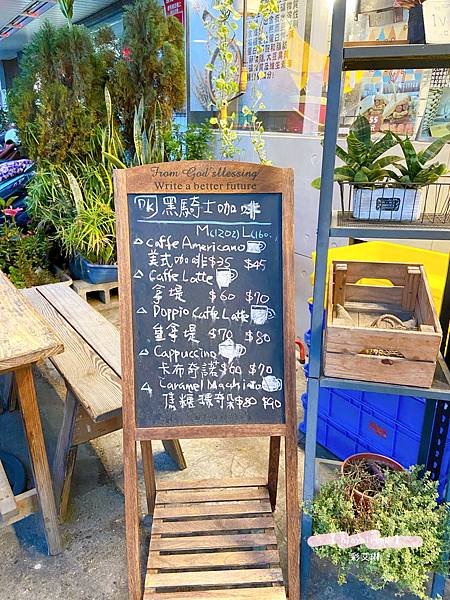 From God's blessing
Write a better future
DK 黑騎士咖啡
M(12oz) L(16oz)
Caffe Americano
美式咖啡 $35 $45
Caffe Latte
拿堤 $60 $70
Doppio Caffe Latte
重拿堤 $70 $80
Cappuccino
卡布奇諾 $60 $70
Caramel Macchiato
焦糖瑪奇朵 $80 $90
彩艾琳